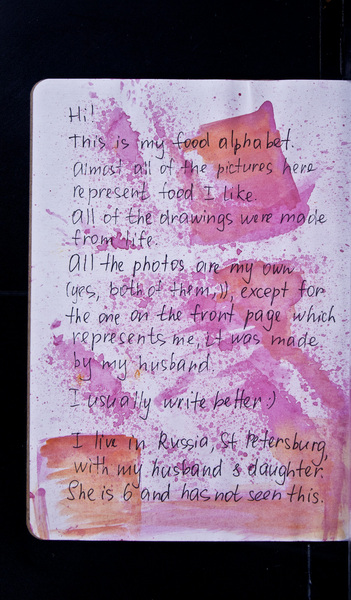 Hi!
This is my food alphabet.
Almost all of the pictures here
represent food I like.
All of the drawings were made
from life.
All the photos are my own
(yes, both of them,)), except for
the one on the front page which
represents me, it was made
by my husband
I usually write better :)
I live in Russia, St Petersburg,
with my husband & daughter.
She is 6 and has not seen this.